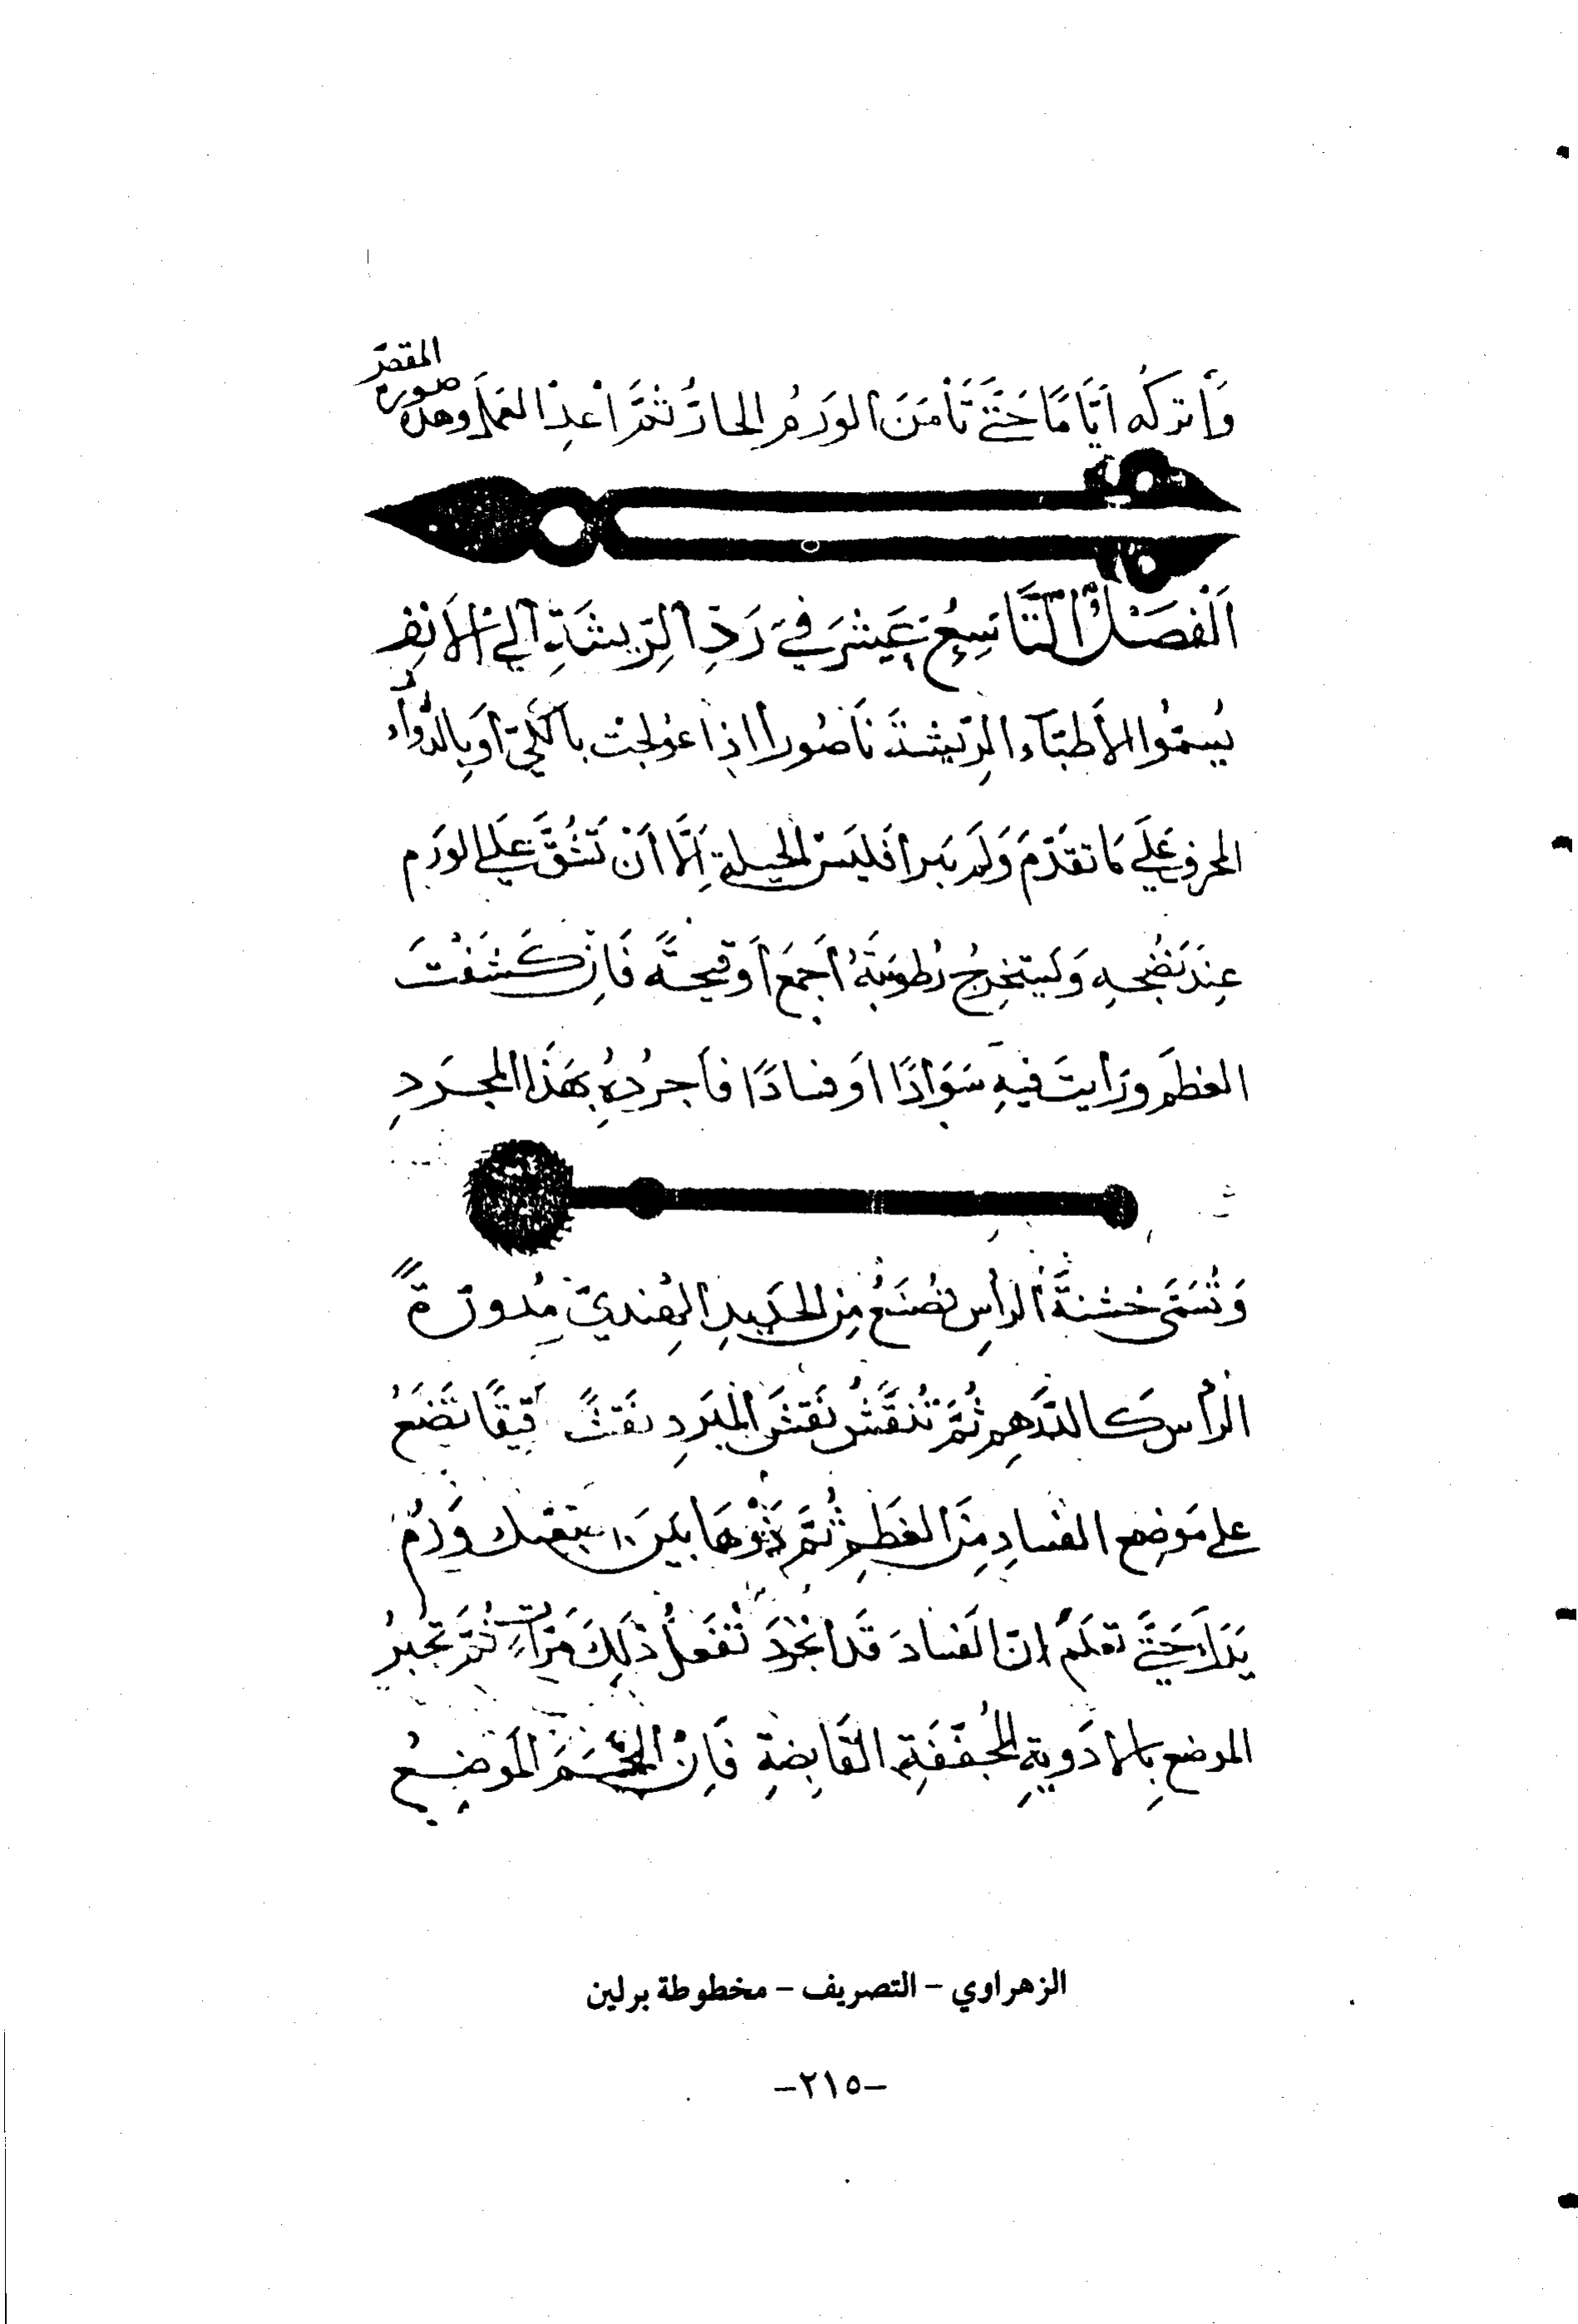 المقص
وَاتركُه اَيَّامًا حَتَّى تَأمَنَ الوَرَمُ الحارُّ ثمَّ اَعِدْ العَمَل وهذه صورة
اَلْفَصْلُ التَّاسِعُ عَشَرَ فِي رَدِّ الرِّيشَةِ اِلى الاَنفِ
يُسمُّوا الأَطبَّاء الرِّيشَةَ نَاصُورا اذا عُولجتْ بالكَيّ اَو بِالدَّواءِ
المحرق عَلَى مَا تقدَّمَ وَلَم يَبرا فَليسَ الحيلةِ اِلَّا اَنْ تَشُقَّ عَلى الورَمِ
عِندَ نَضْجِهِ وَليتخرِجُ رُطوبَتهُ اَجمَعَ اَو قيحَهُ فَاِن كَشَفْتَ
العَظمَ ورَاَيتَ فيهِ سَوَادًا اَو فسادًا فاَجرُدْهُ بِهَذَا المجْرَدِ
وَتُسَمَّى خشنةُ الراسِ تصُنَعُ مِن الحَدِيدِ الهِنديّ مُدوَّرَةً
الراس كَالدِّرهِم ثُمَّ تُنقَّشُ نَقشَ المِبَردِ نقشًا قِيقًا تضَعُ
على مَوضِع الفسادِ مِنَ العَظمِ ثُمَّ بَيَن اصبعَيك وَرُمّ
يَدَكَ حَتَّى تعلَمُ ان الفسادَ قَد انجَردَ تَفعَلُ ذَلِكَ مَرَّاتٍ ثُمَّ تجبُر
الموضع بِالاَدَويةِ المُجَفّفَةِ القَابِضةِ فَاِنْ التَحَمَ المَوضِعُ
الزهراوي – التصريف – مخطوطة برلين
–٢١٥–